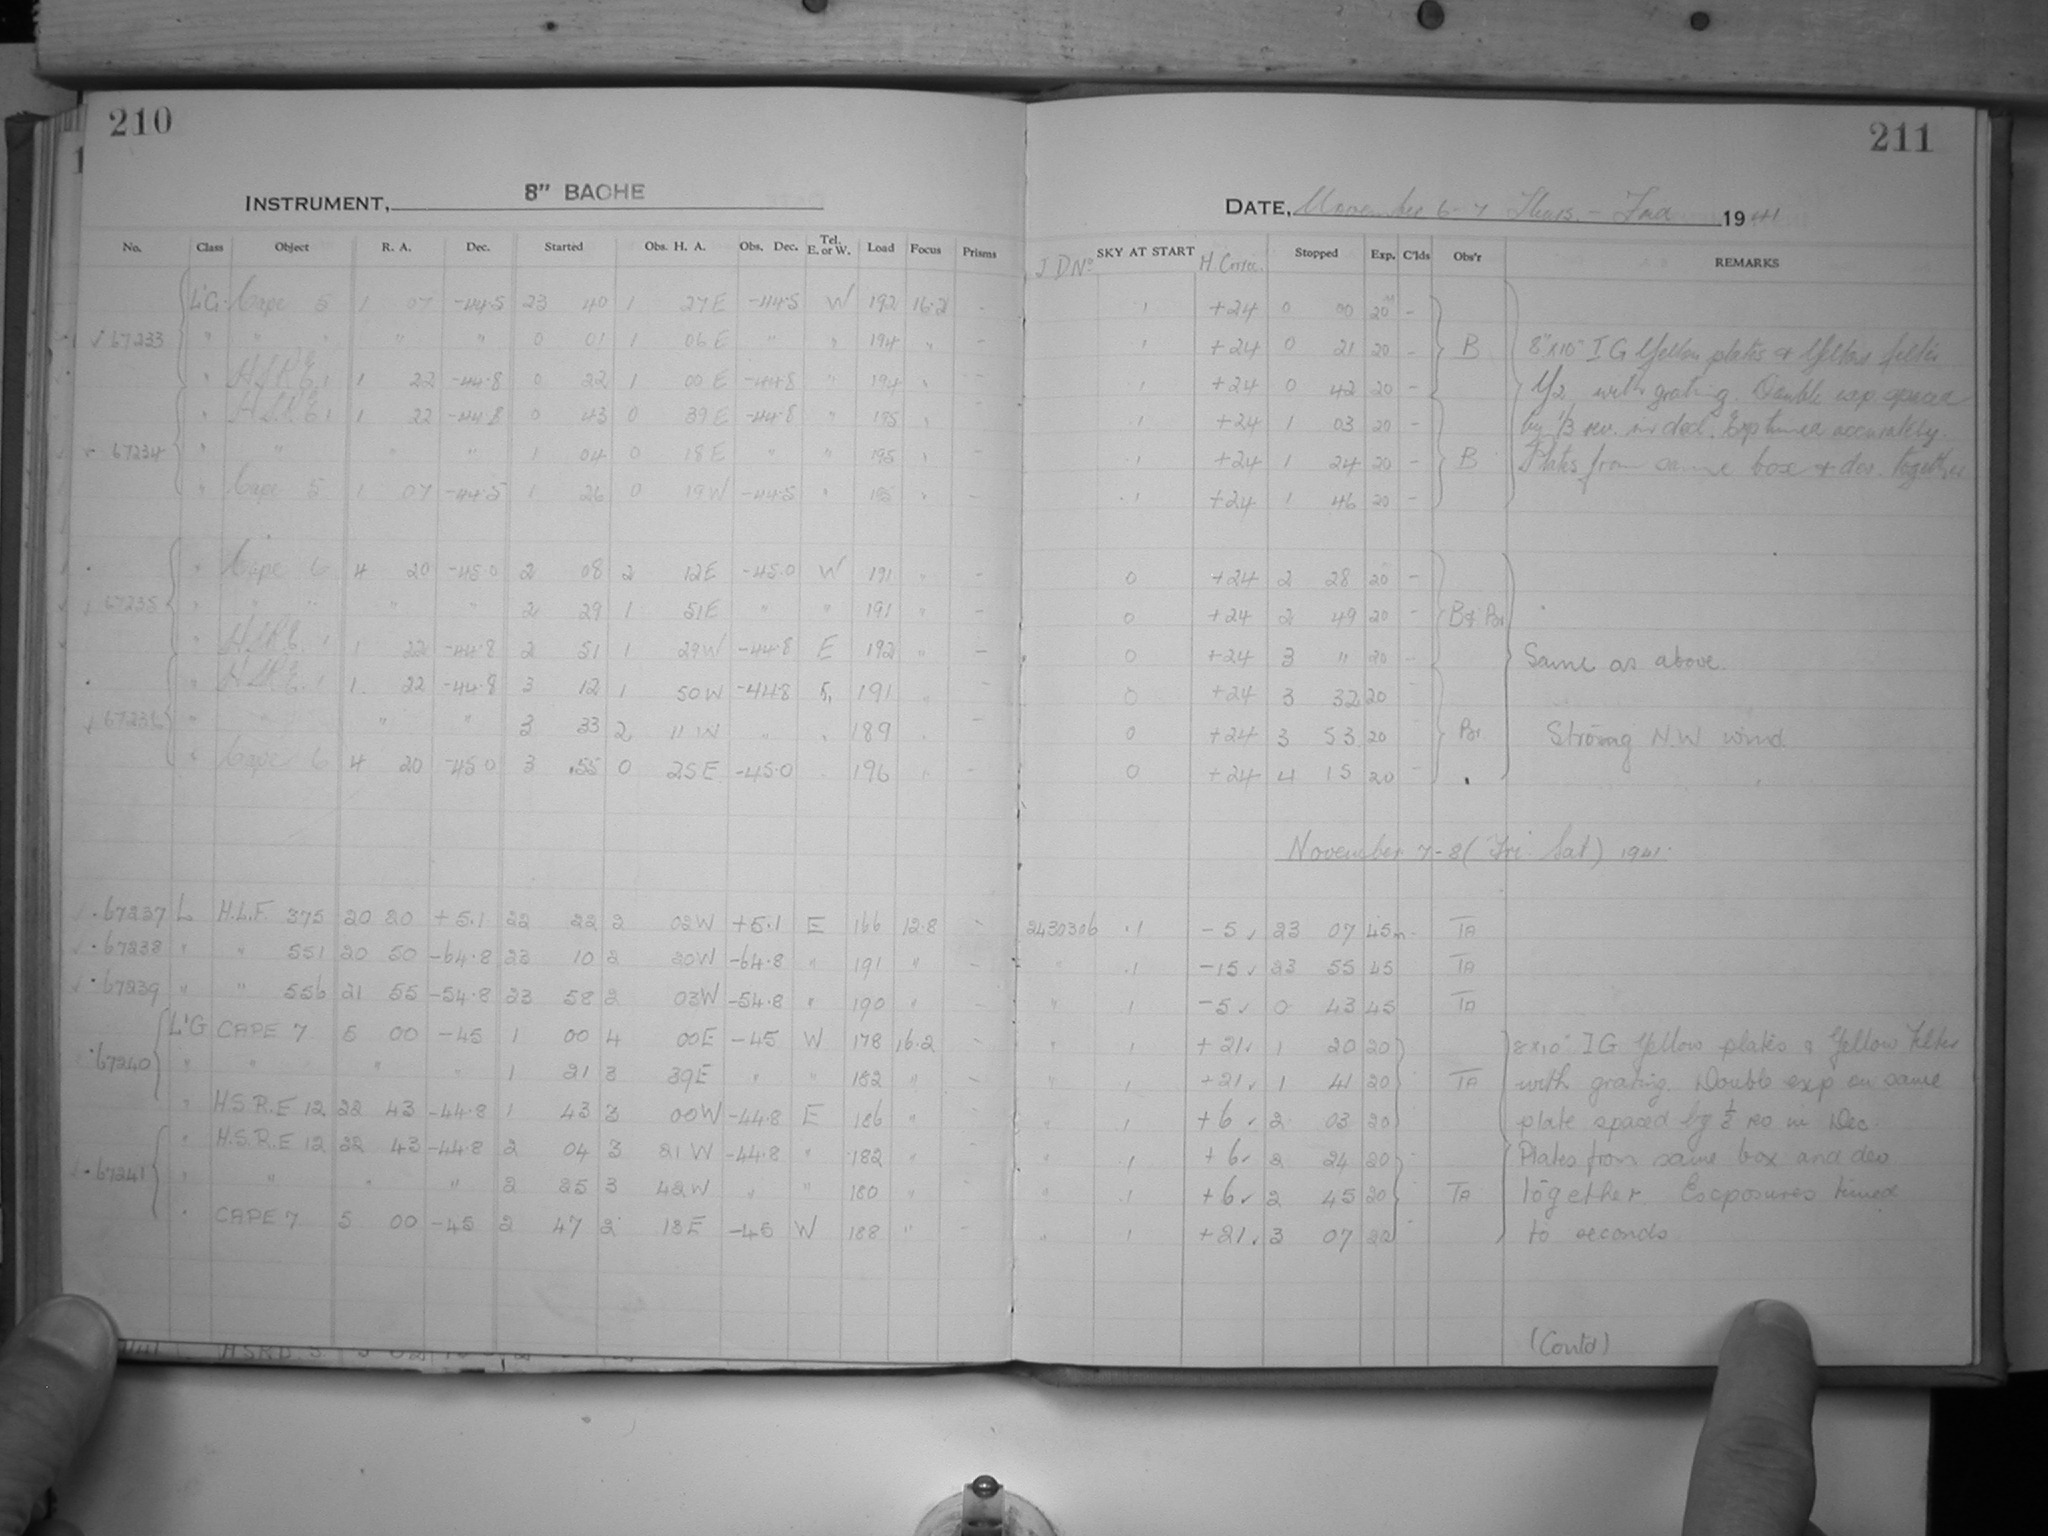 210
INSTRUMENT, 8" BACHE
No. Class Object R. A. Dec. Started Obs. H. A. Obs. Dec. Tel. E. or W. Load Focus Prisms
L'G Cape 5 1 07 -44.5 23 40 1 27E -44.5 W 192 16.2 -
67233 " " " " " 0 01 1 06E " " 194 " -
" 1 22 -44.8 0 22 1 00E -44.8 " 194 " -
" 1 22 -44.8 0 43 0 39E -44.8 " 195 " -
67234 " " " " 1 04 0 18E " " 195 " -
" Cape 5 1 07 -44.5 1 26 0 19W -44.5 " 195 " -
" Cape 6 4 20 -45.0 2 08 2 12E -45.0 W 191 " -
67235 " " " " " 2 29 1 51E " " 191 " -
" 1 22 -44.8 2 51 1 29W -44.8 E 192 " -
" 1 22 -44.8 3 12 1 50W -44.8 191 " -
67236 " " " " 3 33 2 11W " " 189 " -
" Cape 6 4 20 -45.0 3 55 0 25E -45.0 196 " -
67237 L H.L.F. 375 20 20 +5.1 22 22 2 02W +5.1 E 166 12.8 -
67238 " " 551 20 50 -64.8 23 10 2 20W -64.8 " 191 " -
67239 " " 556 21 55 -54.8 23 58 2 03W -54.8 " 190 " -
L'G CAPE 7 5 00 -45 1 00 4 00E -45 W 178 16.2 -
67240 " " " " 1 21 3 39E " " 182 " -
" H.S.R.E 12 22 43 -44.8 1 43 3 00W -44.8 E 186 " -
" H.S.R.E 12 22 43 -44.8 2 04 3 21W -44.8 " 182 " -
67241 " " " " 2 25 3 42W " " 180 " -
" CAPE 7 5 00 -45 2 47 2 13E -45 W 188 " -
211
DATE, November 6-7 Thurs. - 1941
J D No SKY AT START H. Correc. Stopped Exp. C'lds Obs'r REMARKS
.1 +24 0 00 20m -
.1 +24 0 21 20 - B 8"x10" I G Yellow plates & Yellow filter
.1 +24 0 42 20 - Y2 with grating. Double exp. spaced
.1 +24 1 03 20 - by 1/3 rev. in decl. Exp timed accurately.
.1 +24 1 24 20 - B Plates from same box + dev. together
.1 +24 1 46 20 -
0 +24 2 28 20 -
0 +24 2 49 20 -
0 +24 3 11 20 - Same as above.
0 +24 3 32 20 -
0 +24 3 53 20 Strong N.W wind.
0 +24 4 15 20 -
November 7-8 (Fri. Sat) 1941.
2430306 .1 -5 23 07 45m - TA
" .1 -15 23 55 45 TA
" .1 -5 0 43 45 TA
" .1 +21 1 20 20 8x10" I G Yellow plates & Yellow Filter
" .1 +21 1 41 20 TA with grating. Double exp on same
" .1 +6 2 03 20 plate spaced by in Dec.
" .1 +6 2 24 20 Plates from same box and dev
" .1 +6 2 45 20 TA together. Exposures timed
" .1 +21 3 07 20 to seconds
(Contd)